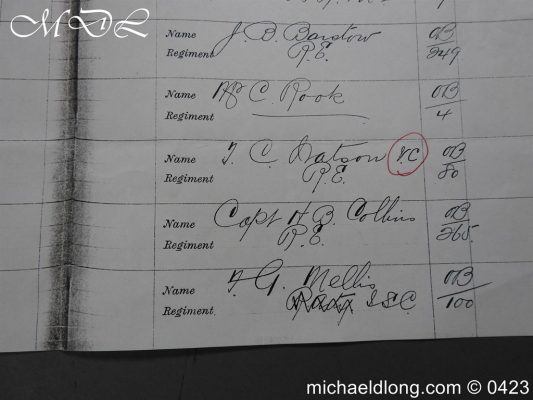 MDL
Name J. B. Barstow OB
Regiment R.E. 249
Name C. Rook OB
Regiment 4
Name T. C. Watson V.C OB
Regiment R.E. 80
Name Capt H. B. Collins OB
Regiment R.E. 265
Name F. G. Mellis OB
Regiment I S C 100
michaeldlong.com © 0423